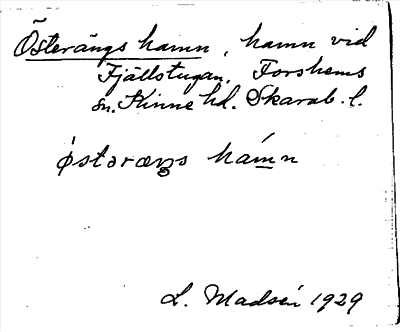 Österängs hamn, hamn vid
Fjällstugan, Forshems
sn. Kinne hd. Skarab. l.
östəræŋs hámn
L. Madsén 1929